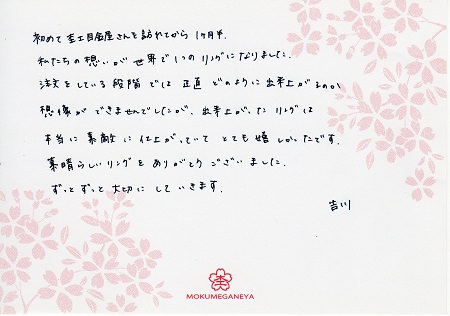 初めて杢目金屋さんを訪れてから1ヶ月半.
私たちの想いが世界で1つのリングになりました.
注文をしている段階では正直どのように出来上がるのか
想像ができませんでしたが、出来上がったリングは
本当に素敵に仕上がっていてとても嬉しかったです.
素晴らしいリングをありがとうございました.
ずっとずっと大切にしていきます.
吉川
杢
MOKUMEGANEYA